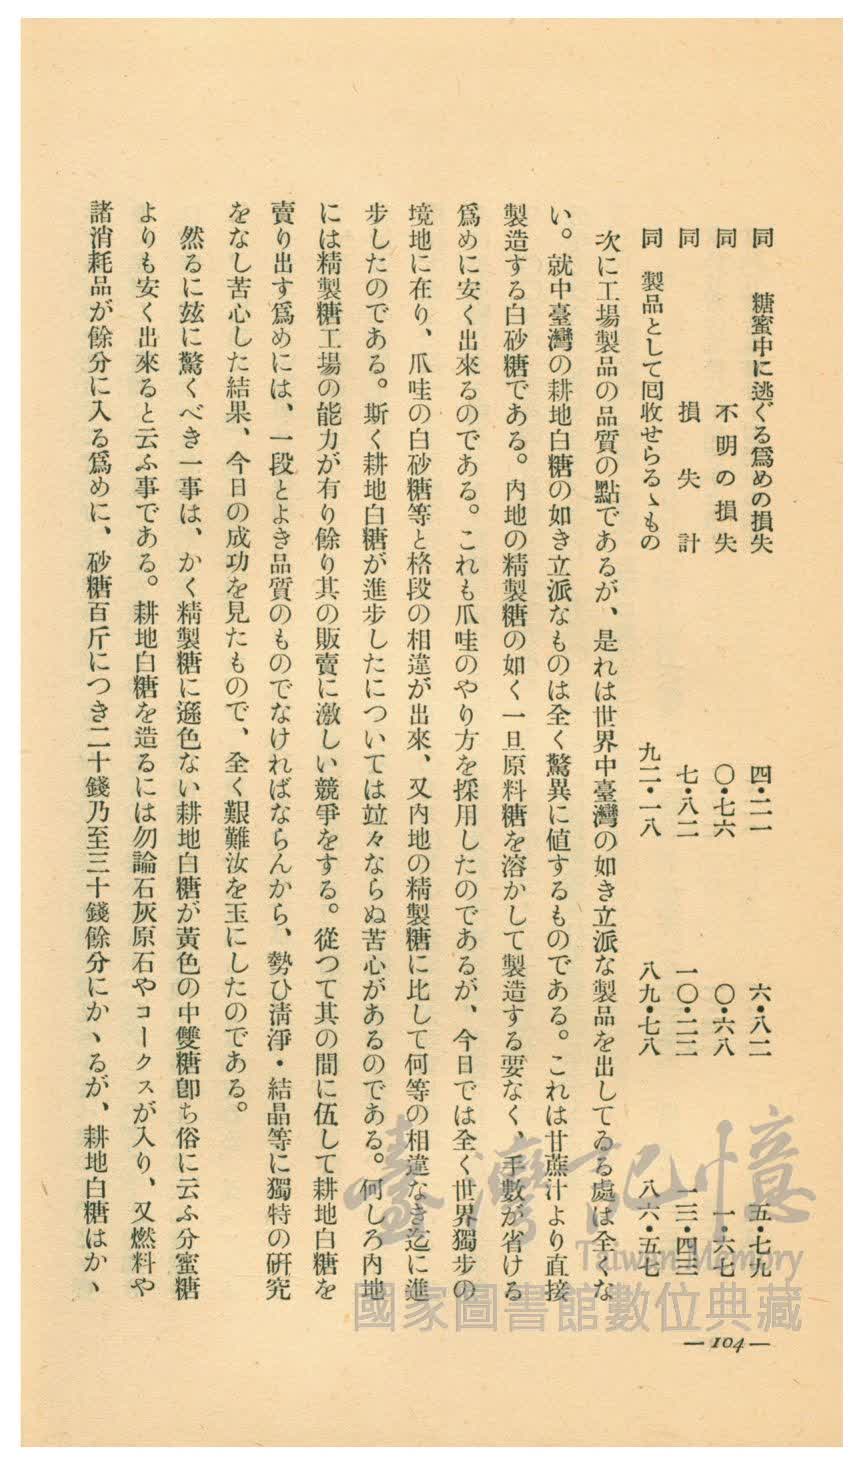 同　糖蜜中に逃ぐる爲めの損失　四・二一　六・八二　五・七九
同　不明の損失　〇・七六　〇・六八　一・六七
同　損失計　七・八二　一〇・二二　一三・四三
同　製品として囘收せらるゝもの　九二・一八　八九・七八　八六・五七
次に工場製品の品質の點であるが、是れは世界中臺灣の如き立派な製品を出してゐる處は全くな
い。就中臺灣の耕地白糖の如き立派なものは全く驚異に値するものである。これは甘蔗汁より直接
製造する白砂糖である。內地の精製糖の如く一旦原料糖を溶かして製造する要なく、手數が省ける
爲めに安く出來るのである。これも爪哇のやり方を採用したのであるが、今日では全く世界獨步の
境地に在り、爪哇の白砂糖等と格段の相違が出來、又內地の精製糖に比して何等の相違なき迄に進
步したのである。斯く耕地白糖が進步したについては竝々ならぬ苦心があるのである。何しろ內地
には精製糖工場の能力が有り餘り其の販賣に激しい競爭をする。從つて其の間に伍して耕地白糖を
賣り出す爲めには、一段とよき品質のものでなければならんから、勢ひ淸淨・結晶等に獨特の硏究
をなし苦心した結果、今日の成功を見たもので、全く艱難汝を玉にしたのである。
然るに玆に驚くべき一事は、かく精製糖に遜色ない耕地白糖が黃色の中雙糖卽ち俗に云ふ分蜜糖
よりも安く出來ると云ふ事である。耕地白糖を造るには勿論石灰原石やコークスが入り、又燃料や
諸消耗品が餘分に入る爲めに、砂糖百斤につき二十錢乃至三十錢餘分にかゝるが、耕地白糖はかゝ
— 104 —
臺灣記憶
Taiwan Memory
國家圖書館數位典藏